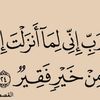 رَبِّ إِنِّي لِمَا أَنزَلْتَ إِ
مِنْ خَيْرٍ فَقِيرٌ ٢٤
القصص